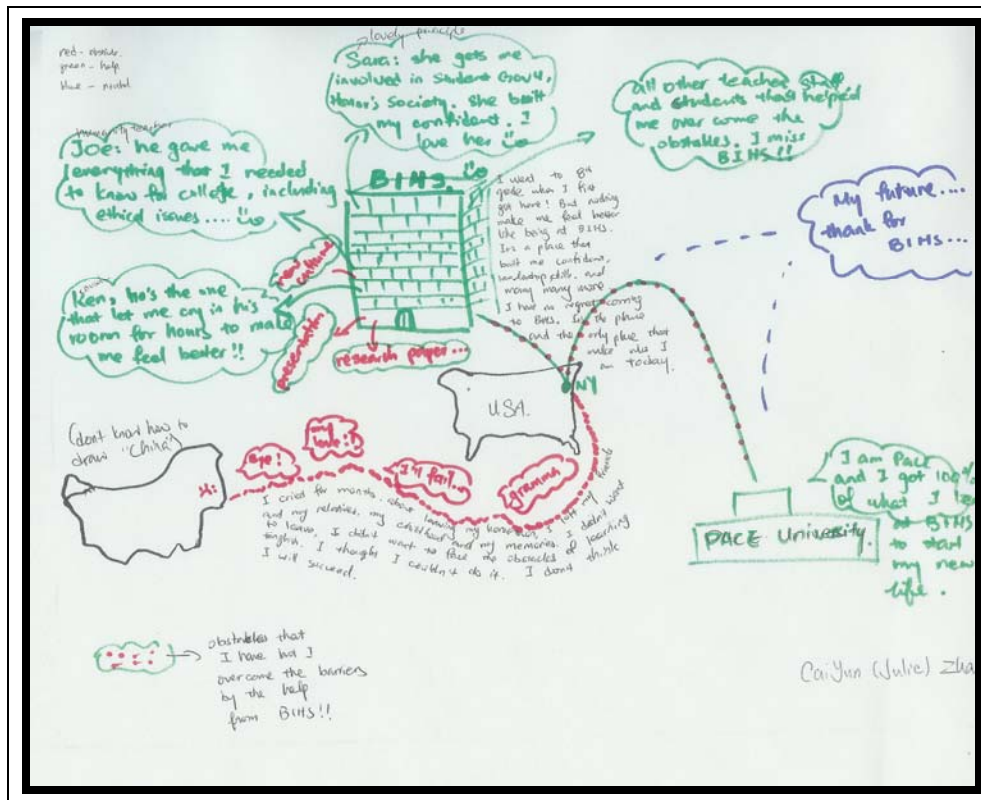 red - obstacle.
green - help
blue - neutral
lovely principle
Sara: she gets me
involved in Student Gov't,
Honor's Society. She built
my confident. I
love her
all other teacher, staff
and students that helped
me over come the
obstacles. I miss
BIHS!!
humanity teacher
Joe: he gave me
everything that I needed
to know for college, including
ethical issues....
BIHS.
I went to 8th
grade when I first
got here! But nothing
make me feel better
like being at BIHS.
It's a place that
built me confident,
leadership skills, and
many many more
I have no regret coming
to BIHS. It's the place
and the only place that
make who I
am today.
My future....
thank for
BIHS...
new culture
Ken, he's the one
that let me cry in his
room for hours to make
me feel beater!!
presentation
research paper...
USA.
NY
(don't know how to
draw "China")
bye!
my love :(
I'll fail...
gramma
I cried for months about leaving my hometown, I left my friends
and my relatives, my childhood and my memories. I didn't want
to leave, I didn't want to face the obstacles of learning
English. I thought I couldn't do it. I don't think
I will succeed.
I am Pace
and I got 100%
of what I
at BIHS
to start
my new
life.
PACE University.
obstacles that
I have but I
overcome the barriers
by the help
from BIHS!!
CaiYun (Julie) Zha